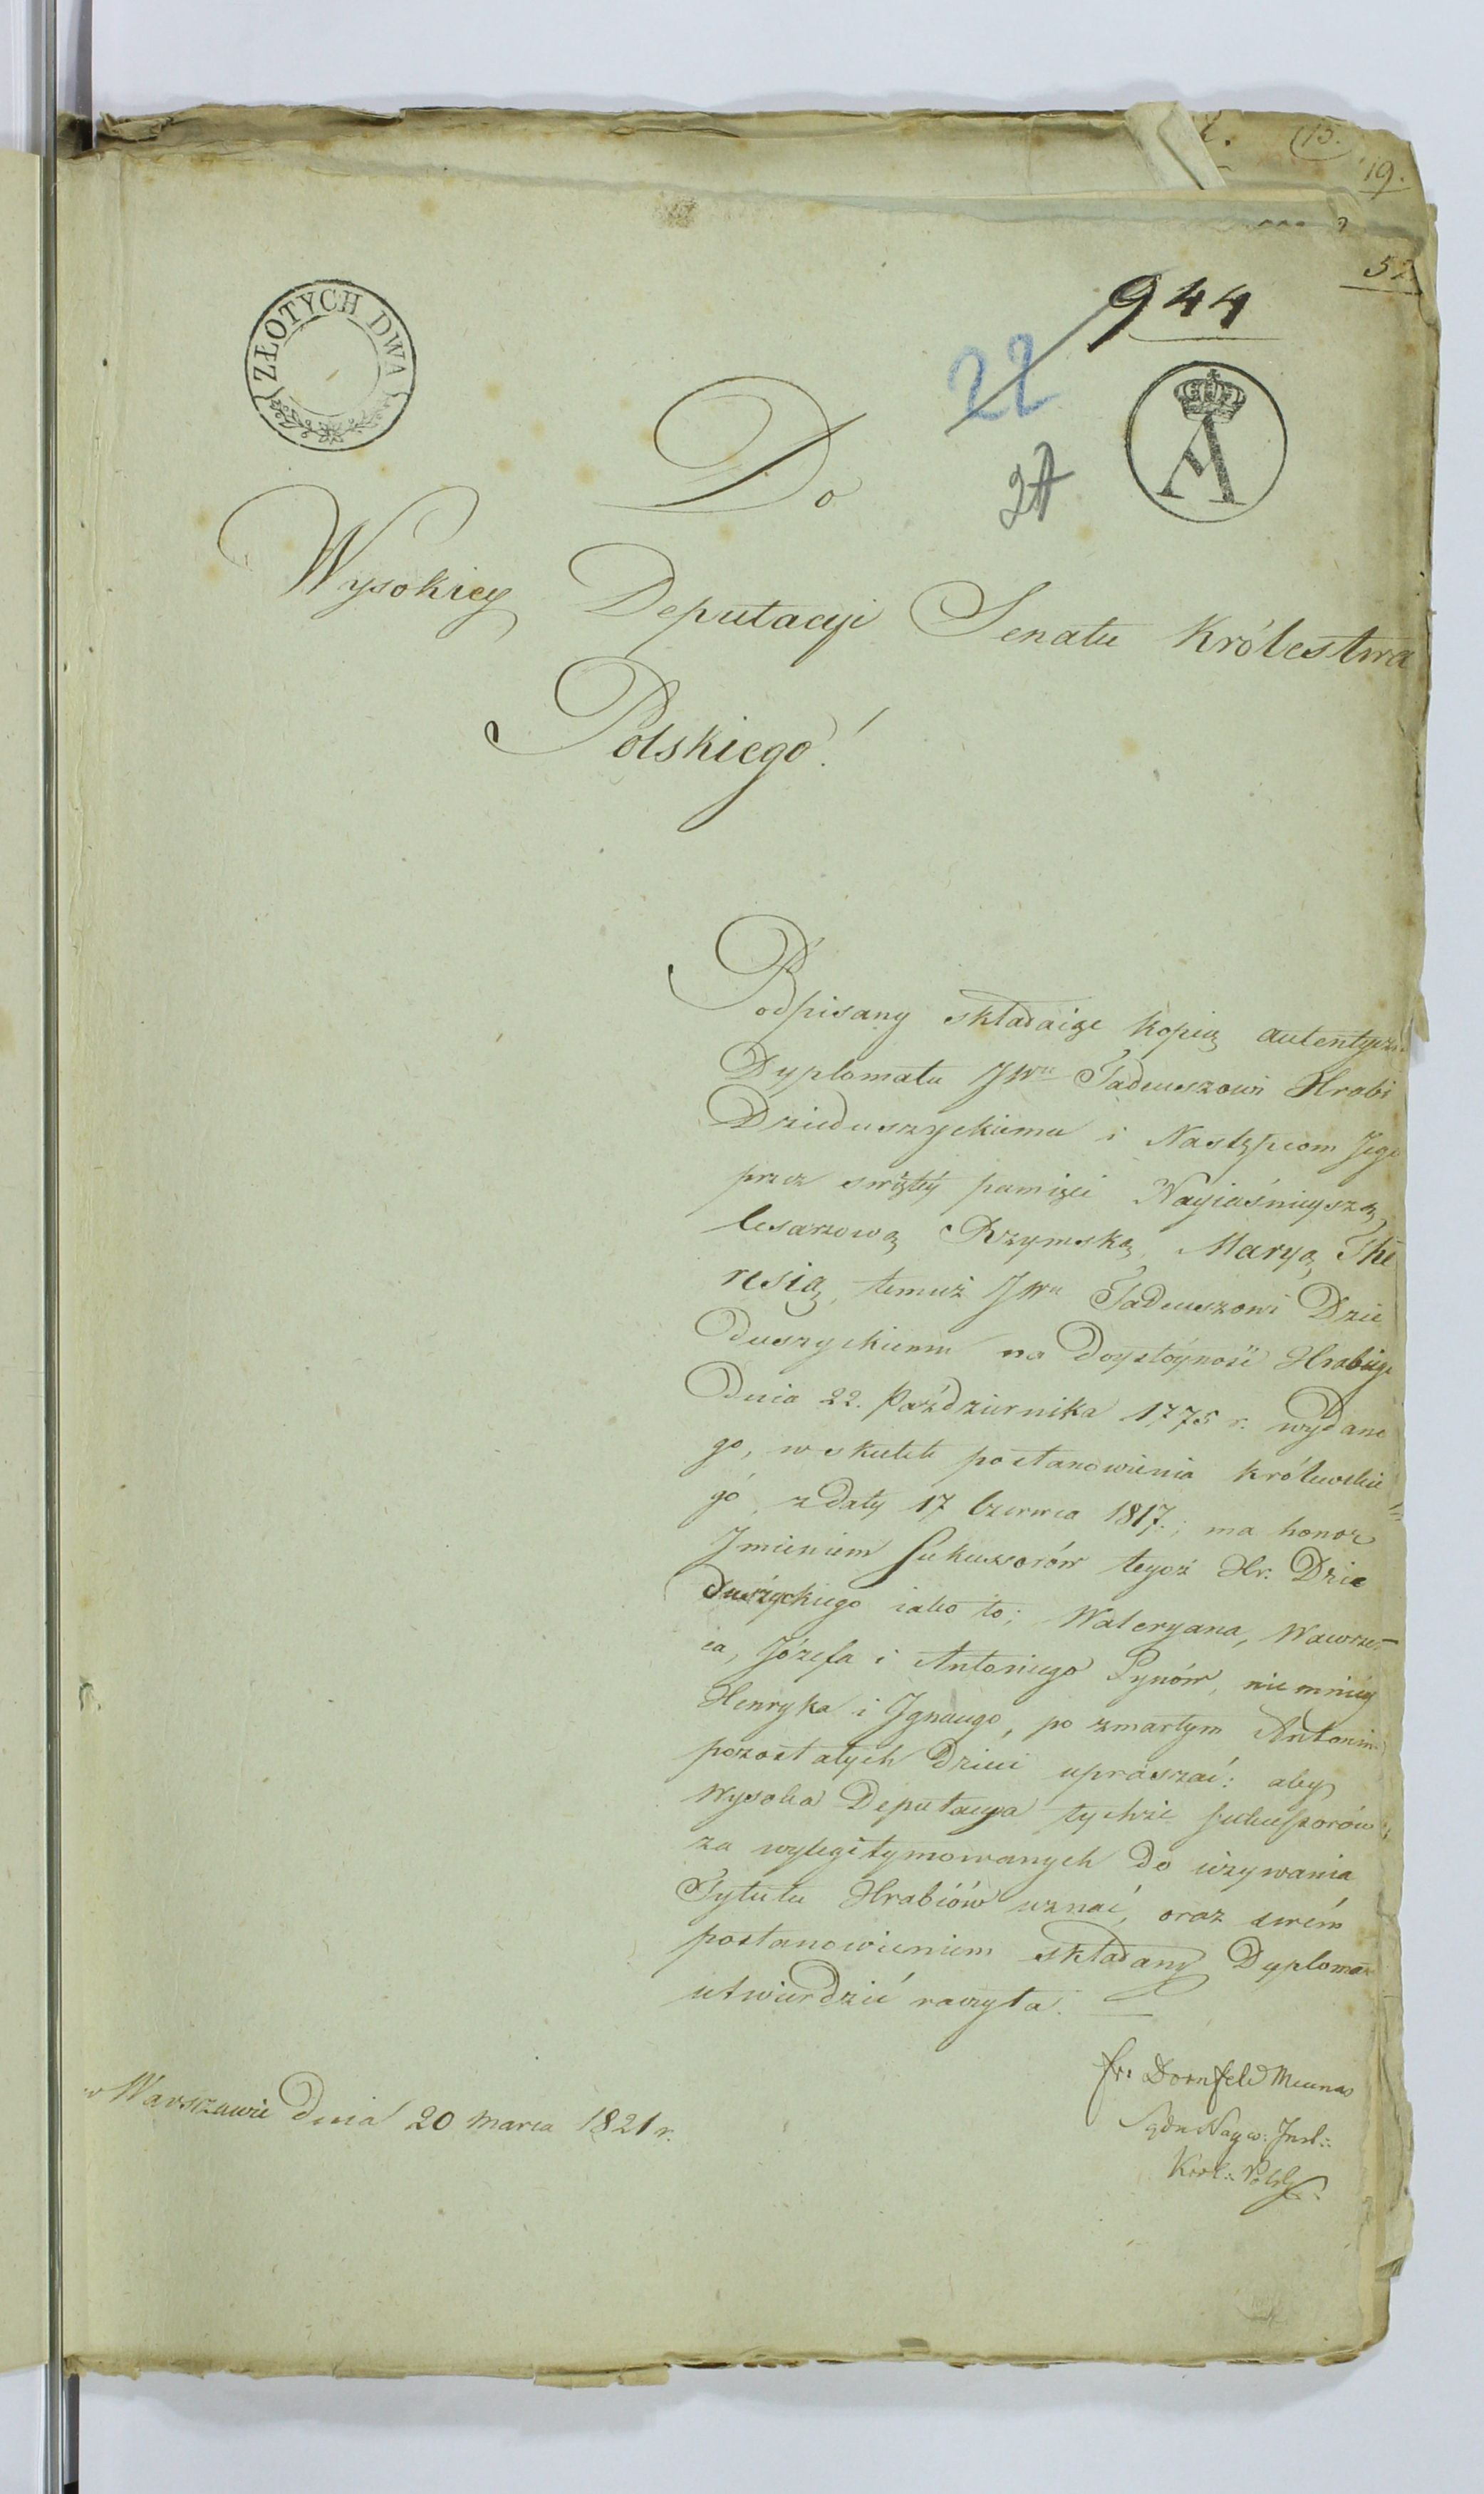 13.
19.
52
944
22
ZŁOTYCH DWA
A
Do
Wysokiey Deputacyi Senatu Królestwa
Polskiego!
Podpisany składaiąc kopią autentyczn
Dyplomatu JWu Tadeuszowi Hrabi
Dzieduszyckiemu i Następcom Jego
przez swiętéy pamięci Nayiaśnieyszą
Cesarzową Rzymską, Maryą The
resią, temuż JWu Tadeuszowi Dzie
duszyckiemu na Doystoyność Hrabiego
Dnia 22. Października 1775 r. wydane
go, w skutek postanowienia Królewskie
go z daty 17 Czerwca 1817.; ma honor
Jmieniem Sukcessorów tegoż Hr. Dzie
duszyckiego iako to; Waleryana, Wawrzeń
ca, Józefa i Antoniego Synów, niemniéy
Henryka i Jgnacego, po zmarłym Antonim
pozostałych Dzieci upraszać: aby
Wysoka Deputacya tychże sukcessorów
za wylegitymowanych do używania
Tytułu Hrabiów uznać, oraz swém
postanowieniem składany Dyplomat
utwierdzić raczyła.
fr: Dornfeld Mecenas
Sądu Nayw: Inst:
Król: Polsk:
w Warszawie dnia 20 Marca 1821 r.